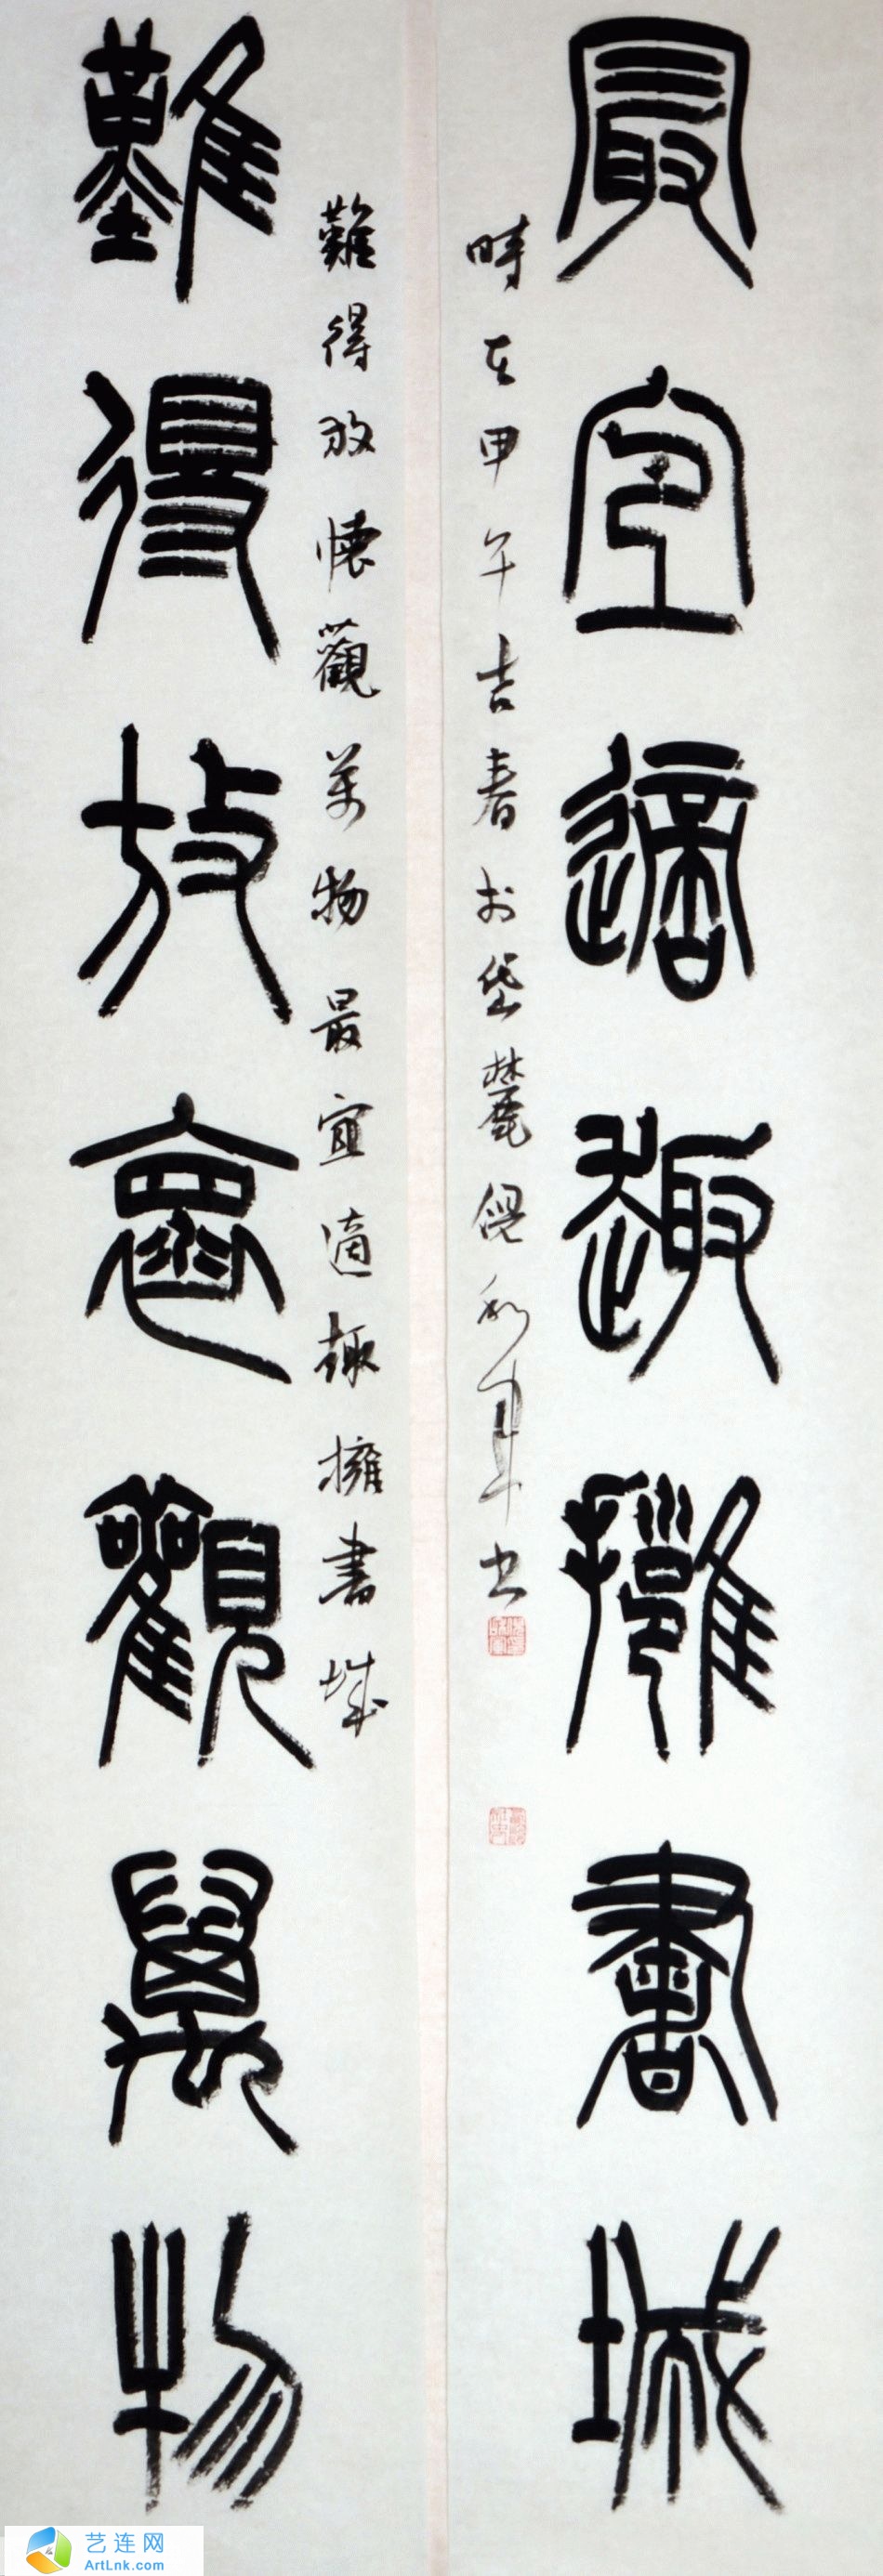 最宜適趣擁書城
時在甲午吉春於岱麓倪和軍书
難得放懷觀萬物最宜適趣擁書城
難得放懷觀萬物
艺连网
ArtLnk.com